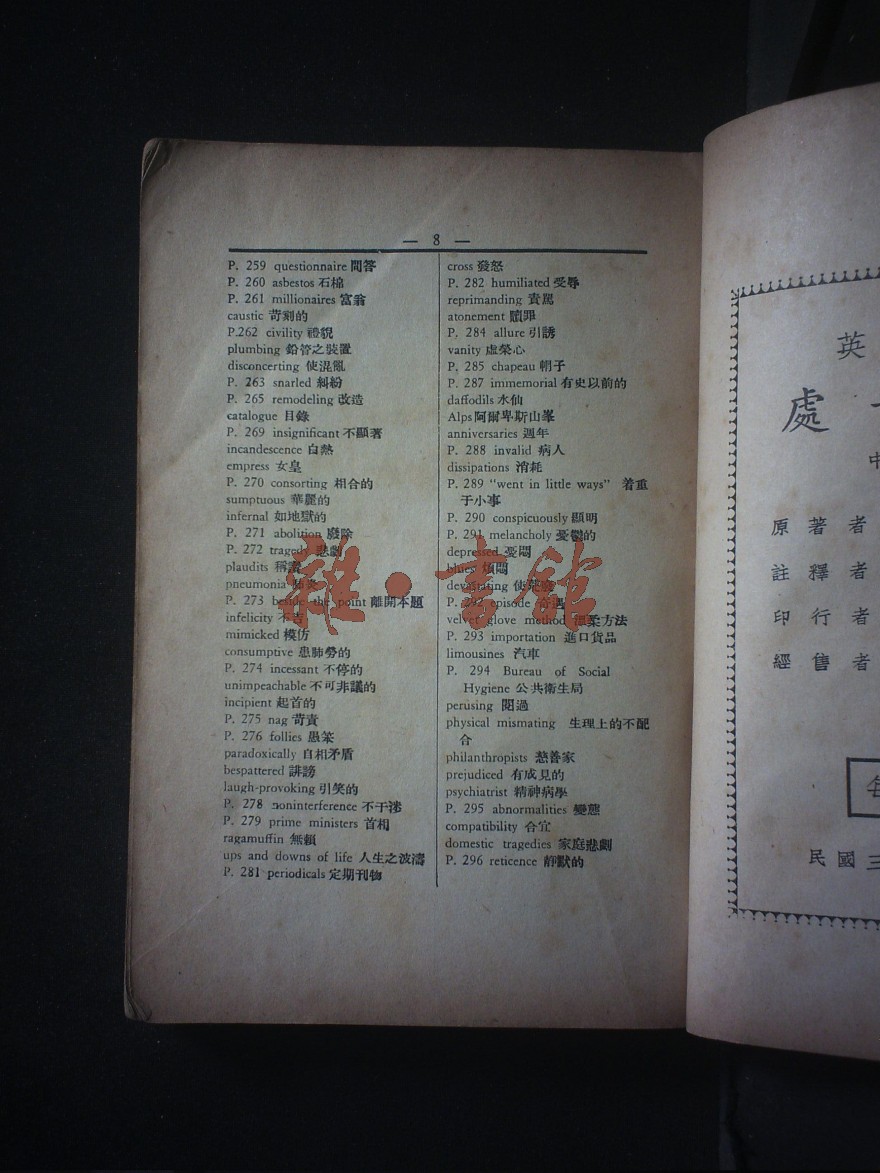 — 8 —
P. 259 questionnaire 問答
P. 260 asbestos 石棉
P. 261 millionaires 富翁
caustic 苛刻的
P.262 civility 禮貌
plumbing 鉛管之裝置
disconcerting 使混亂
P. 263 snarled 糾紛
P. 265 remodeling 改造
catalogue 目錄
P. 269 insignificant 不顯著
incandescence 白熱
empress 女皇
P. 270 consorting 相合的
sumptuous 華麗的
infernal 如地獄的
P. 271 abolition 廢除
P. 272 tragedy 悲劇
plaudits 稱讚
pneumonia 肺炎
P. 273 beside the point 離開本題
infelicity 不吉
mimicked 模仿
consumptive 患肺勞的
P. 274 incessant 不停的
unimpeachable 不可非議的
incipient 起首的
P. 275 nag 苛責
P. 276 follies 愚笨
paradoxically 自相矛盾
bespattered 誹謗
laugh-provoking 引笑的
P. 278 noninterference 不干涉
P. 279 prime ministers 首相
ragamuffin 無賴
ups and downs of life 人生之波濤
P. 281 periodicals 定期刊物
cross 發怒
P. 282 humiliated 受辱
reprimanding 責罵
atonement 贖罪
P. 284 allure 引誘
vanity 虛榮心
P. 285 chapeau 帽子
P. 287 immemorial 有史以前的
daffodils 水仙
Alps 阿爾卑斯山峯
anniversaries 週年
P. 288 invalid 病人
dissipations 消耗
P. 289 "went in little ways" 着重
于小事
P. 290 conspicuously 顯明
P. 291 melancholy 憂鬱的
depressed 憂悶
blues 煩悶
devastating 使荒廢
P. 292 episode 奇遇
velvet glove method 溫柔方法
P. 293 importation 進口貨品
limousines 汽車
P. 294 Bureau of Social
Hygiene 公共衛生局
perusing 閱過
physical mismating 生理上的不配
合
philanthropists 慈善家
prejudiced 有成見的
psychiatrist 精神病學
P. 295 abnormalities 變態
compatibility 合宜
domestic tragedies 家庭悲劇
P. 296 reticence 靜默的
雜·書館
英
處
原著者
註釋者
印行者
經售者
每
民國三